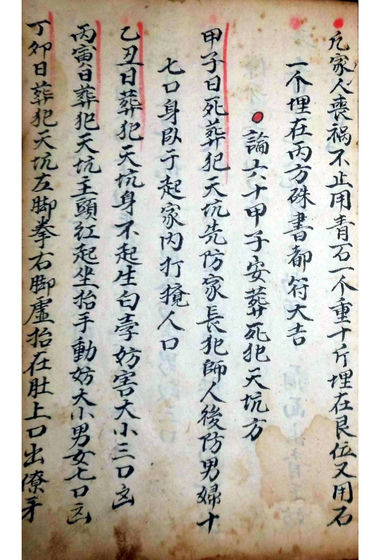 凢家人喪禍不止用青石一个重十斤埋在艮位又用石
一个埋在丙方硃書都符大吉
論六十甲子安葬死犯天坑方
甲子日死葬犯天坑先防家長犯師人後防男婦十
七口身臥于起家内打攪人口
乙丑日葬犯天坑身不起生白孝妨害大小三口凶
丙寅日葬犯天坑主頭紅起坐抬手動妨大小男女七口凶
丁卯日葬犯天坑左脚拳右脚虛抬在肚上口出獠牙